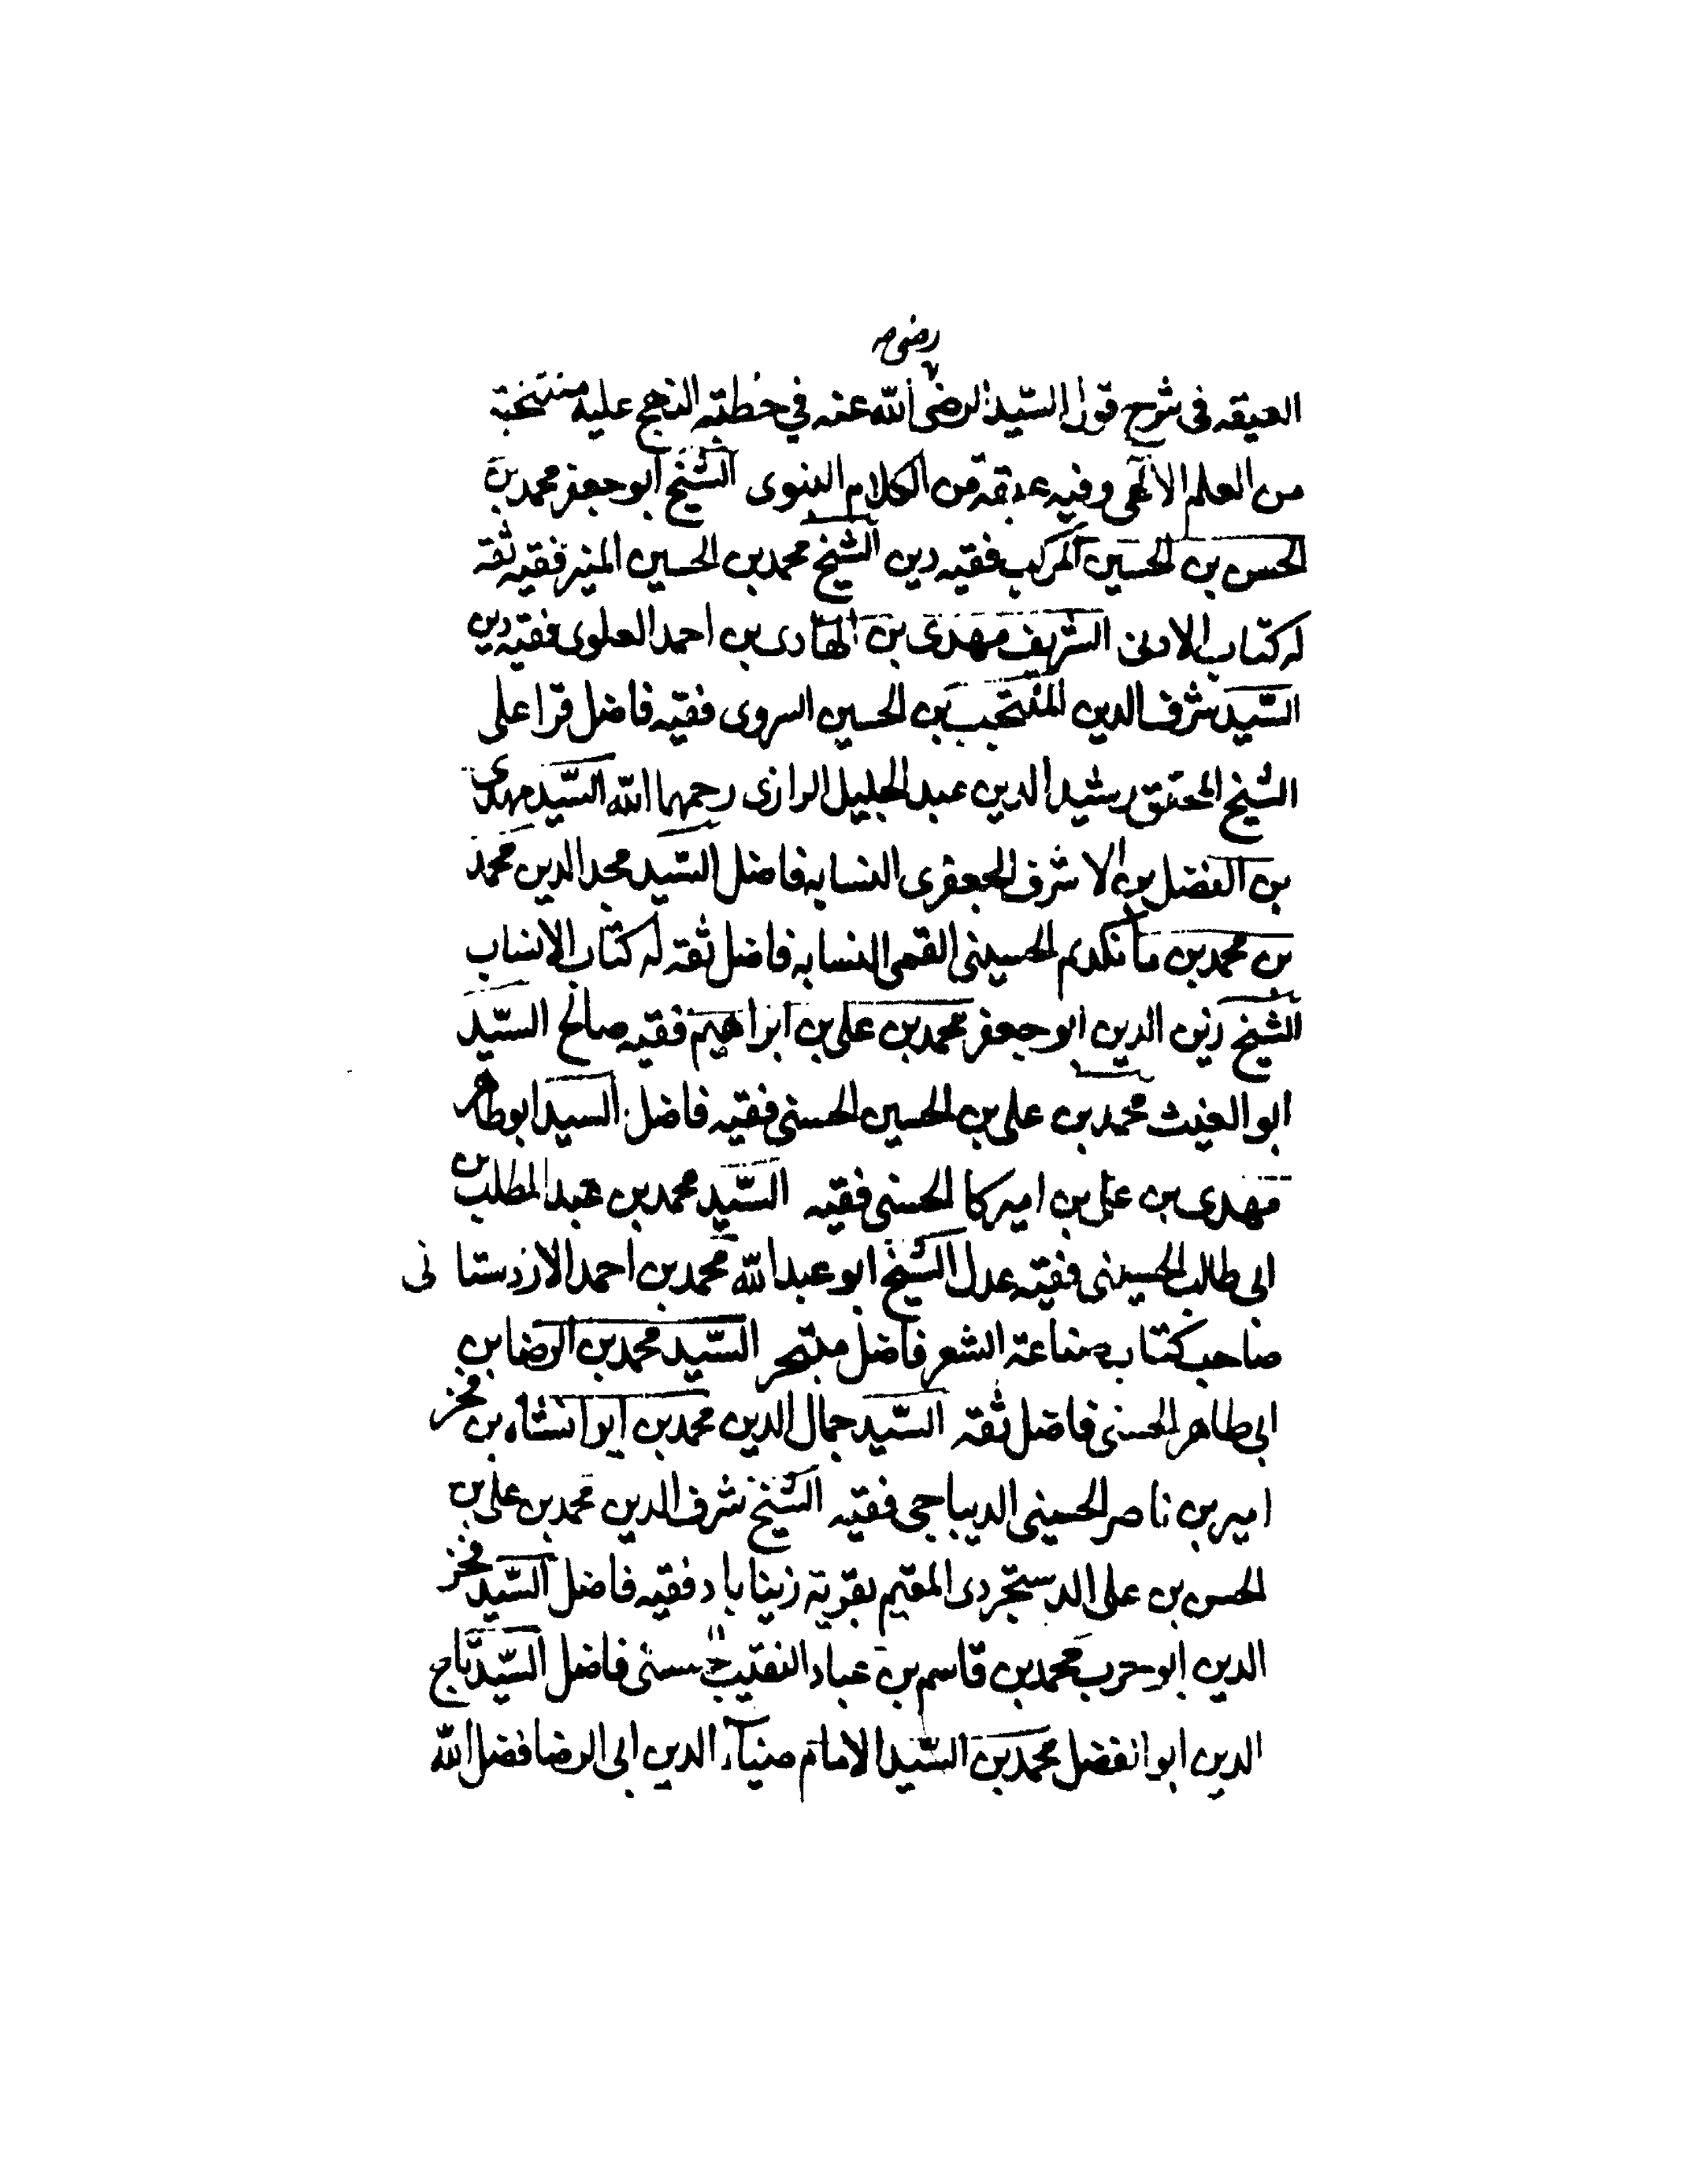 رضی
العبقه فى شرح قول السيد الرضى الله عنه في خطبته النهج عليه
من العلم الالهى وفيه عبقة من الكلام النبوى الشيخ ابو جعفر محمد بن
الحسن بن الحسين المركب فقيه دين الشيخ محمد بن الحسين المنير فقيه ثقه
له كتاب الشريف مهدى بن الهادى بن احمد العلوى فقيه دين
السيد شرف الدين المنتجب بن الحسين السروى فقيه فاضل قرا على
الشيخ المحقق رشيد الدين عبد الجليل الرازى رحمهما الله السيد مهدى
بن الفضل بن الاشرف الجعفرى النسابه فاضل السيد مجد الدين محمد
بن محمد بن مانكديم الحسينى القمى النسابه فاضل ثقه له كتاب الانساب
الشيخ زين الدين ابو جعفر محمد بن على بن ابراهيم فقيه صالح السيد
ابو الغيث محمد بن على بن الحسين الحسنى فقيه فاضل السيد ابو طاهر
مهدى بن على بن اميركا الحسنى فقيه السيد محمد بن عبد المطلب بن
ابى طالب الحسينى فقيه عدل الشيخ ابو عبد الله محمد بن احمد الاردستانى
صاحب كتاب صناعة الشعر فاضل متبحر السيد محمد بن الرضا بن
ابى طاهر الحسنى فاضل ثقه السيد جمال الدين محمد بن ايرانشاه بن فخر
امير بن ناصر الحسينى الديباجى فقيه الشيخ شرف الدين محمد بن على بن
الحسن بن على الدستجردى المقيم بقرية زيناباد فقيه فاضل السيد فخر
الدين ابو حرب محمد بن قاسم بن عباد النقيب حسنى فاضل السيد تاج
الدين ابو الفضل محمد بن السيد الامام ضياء الدين ابى الرضا فضل الله